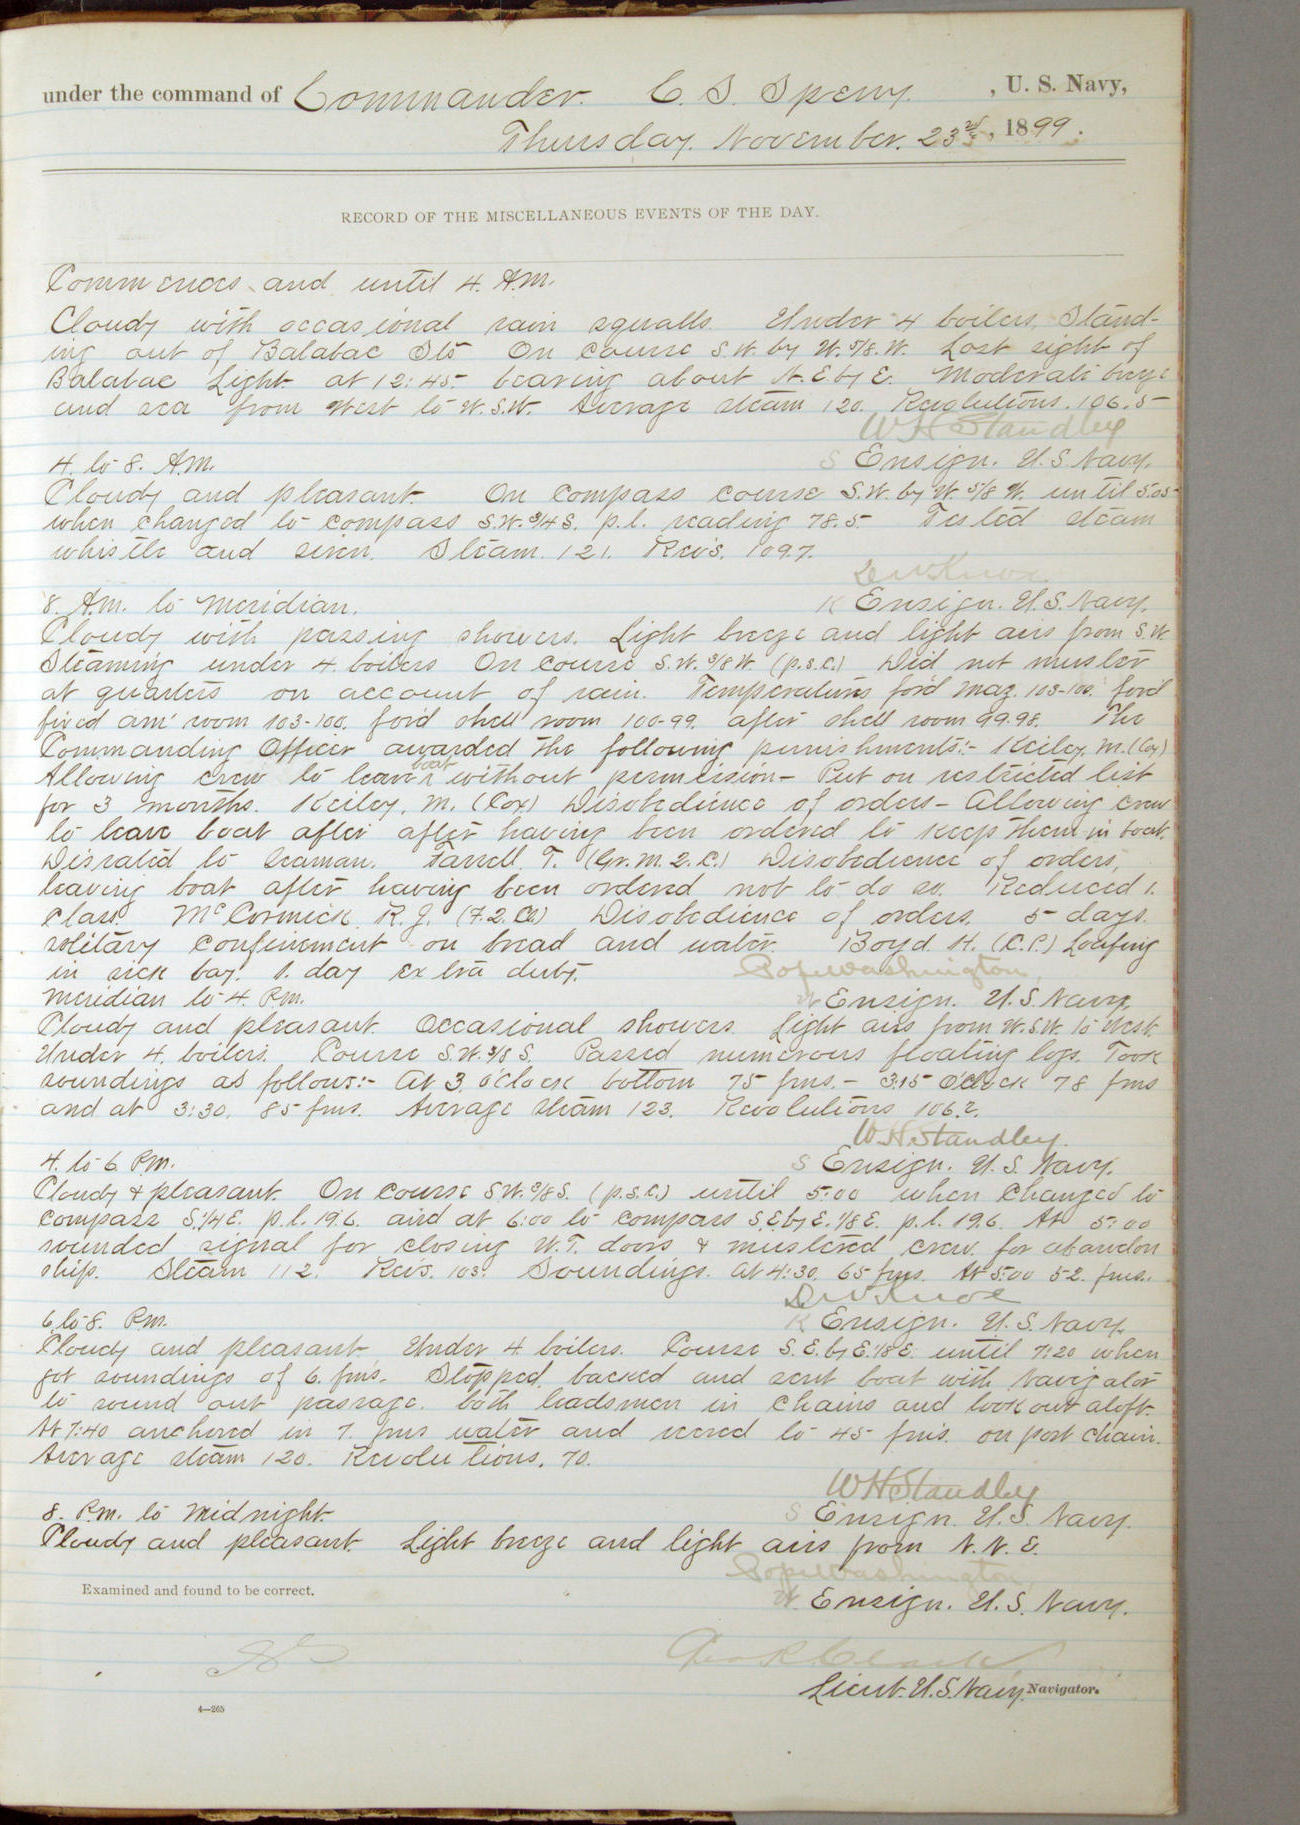 under the command of Commander. C. S. Sperry. , U. S. Navy,
Thursday, November. 23rd, 1899.
RECORD OF THE MISCELLANEOUS EVENTS OF THE DAY.
Commences and until 4. A.M.
Cloudy with occasional rain squalls. Under 4 boilers, Stand-
ing out of Balabac Sts On course S.W. by W. 5/8. W. Lost sight of
Balabac Light at 12:45- bearing about N.E. by E. Moderate breeze
and sea from West to W.S.W. Average steam 120. Revolutions. 106.5-
W H Standley
4. to 8. A.M. S Ensign. U.S. Navy.
Cloudy and pleasant. On compass course S.W. by W. 5/8 W. until 5.05-
when changed to compass S.W. 3/4 S. p.l. reading 78.5- Tested steam
whistle and siren. Steam. 121. Rev's. 109.7.
D W Knox.
8. A.M. to Meridian. K Ensign. U.S. Navy.
Cloudy with passing showers. Light breeze and light airs from S.W.
Steaming under 4. boilers On course S.W. 3/8 W. (p.s.c.) Did not muster
at quarters on account of rain. Temperatures for'd mag. 103-100. for'd
fixed am' room 103-100. for'd shell room 100-99. after shell room 99.98. The
Commanding Officer awarded the following punishments:- Keiley, M. (Cox)
Allowing crew to leave boat without permission- Put on restricted list
for 3 months. Keiley, M. (Cox) Disobedience of orders- Allowing crew
to leave boat after after having been ordered to keep them in boat.
Disrated to seaman. Farrell. T. (Gr. M. 2. C.) Disobedience of orders,
leaving boat after having been ordered not to do so. Reduced 1.
class McCormick. R. J. (F. 2. Cl.) Disobedience of orders. 5- days.
solitary confinement on bread and water. Boyd. H. (C.P.) Loafing
in sick bay. 1. day extra duty. Pope Washington,
Meridian to 4. P.M. W Ensign. U.S. Navy,
Cloudy and pleasant. Occasional showers. Light airs from W.S.W. to West.
Under 4. boilers. Course S.W. 3/8 S. Passed numerous floating logs. Took
soundings as follows:- At 3 o'clock bottom 75 fms.- 3.15 o'clock 78 fms
and at 3:30. 85 fms. Average steam 123. Revolutions 106.2.
W H Standley.
4. to 6 P.M. S Ensign. U.S. Navy.
Cloudy & pleasant. On course S.W. 3/8 S. (p.s.c.) until 5:00 when changed to
compass S. 1/4 E. p.l. 19.6. and at 6:00 to compass S.E. by E. 1/8 E. p.l. 19.6. At 5:00
sounded signal for closing W.T. doors & mustered crew for abandon
ship. Steam 112. Rev's. 103. Soundings. at 4:30. 65 fms. At 5:00 52. fms.
D W Knox
6 to 8. P.M. K Ensign. U.S. Navy,
Cloudy and pleasant. Under 4 boilers. Course S.E. by E. 1/8 E. until 7:20 when
got soundings of 6. fms. Stopped, backed and sent boat with Navigator
to sound out passage. both leadsmen in chains and lookout aloft.
At 7:40 anchored in 7. fms water and veered to 45 fms. on port chain.
Average steam 120. Revolutions. 70.
W H Standley
8. P.M. to Midnight S Ensign. U.S. Navy.
Cloudy and pleasant. Light breeze and light airs from N. N. E.
Pope Washington,
Examined and found to be correct.
W. Ensign. U.S. Navy.
Geo R Clark
Lieut. U.S. Navy. Navigator.
4—265